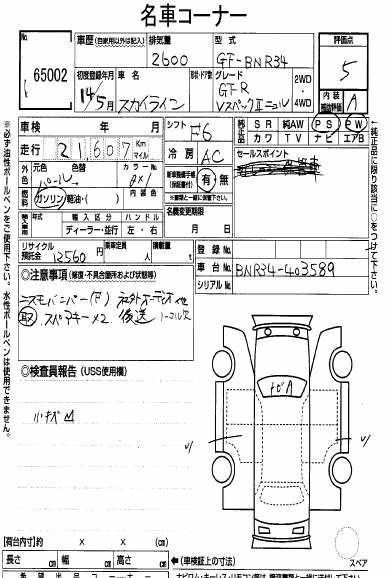 名車コーナー
No. 65002
車歴(自家用以外は記入) 排気量 2600 型式 GF-BNR34 評価点 5
初度登録年月 14/5月 車名 スカイライン 形状・ドア数 グレード GT-R VスペックⅡニュル 2WD・4WD 内装 A
車検 年 月 シフト F6 純正品 SR 純AW PS PW
走行 21,607 Km マイル 冷房 AC カワ TV ナビ エアB
外色 元色 パール 色替 カラーNo. QX1 内装色 有・無 セールスポイント
燃料 ガソリン・軽油・( )
輸入車用 年式 輸入区分 ディーラー・並行 ハンドル 左・右 名義変更期限 月 日
リサイクル預託金 12560円 乗車定員 人 積載量 t 登録No.
車台No. BNR34-403589
シリアルNo.
◎注意事項(修復・不具合箇所および状態等)
ニスモバンパー(F) 社外オーディオ他
取 スペアキー×2 後送 リコール欠
◎検査員報告(USS使用欄)
小キズ
トビA
W
W
【荷台内寸】 × × (cm)
長さ cm 幅 cm 高さ cm ←(車検証上の寸法)
スペア
※必ず油性ボールペンをご使用下さい。水性ボールペンは使用できません。
(純正品に限り該当に○をつけて下さい。)